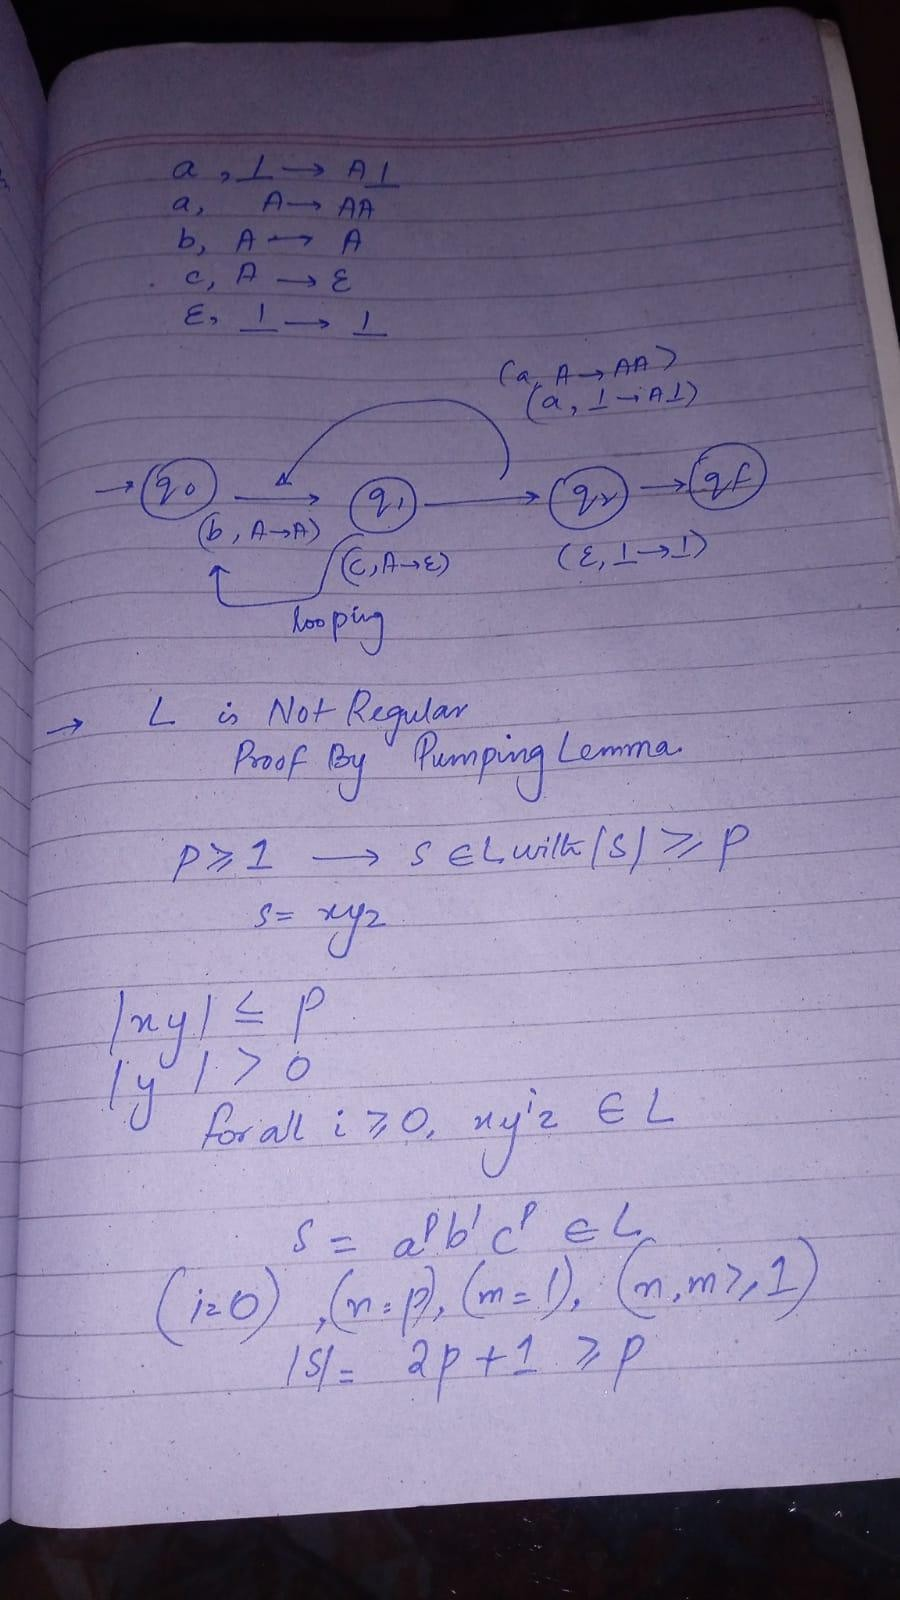 a, ⊥ → A⊥
a, A → AA
b, A → A
c, A → ε
ε, ⊥ → ⊥
(a, A → AA)
(a, ⊥ → A⊥)
→ q0 → q1 → q2 → qf
(b, A→A)
(c, A→ε)
(ε, ⊥→⊥)
looping
→ L is Not Regular
Proof By Pumping Lemma
p ≥ 1 → S ∈ L with |S| ≥ p
S = xyz
|xy| ≤ p
|y| > 0
for all i ≥ 0, xyⁱz ∈ L
S = aᵖb¹cᵖ ∈ L
(i=0), (n=p), (m=1), (n,m ≥ 1)
|S| = 2p + 1 ≥ p